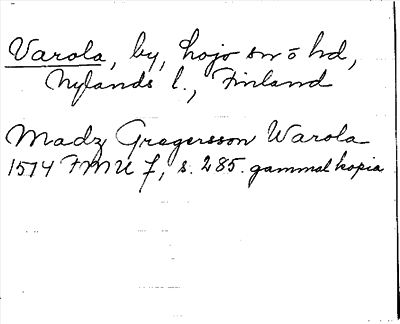 Varola, by, Lojo sn o hd,
Nylands l., Finland
Madz Gregersson Warola
1514 FMU 7, s. 285. gammal kopia